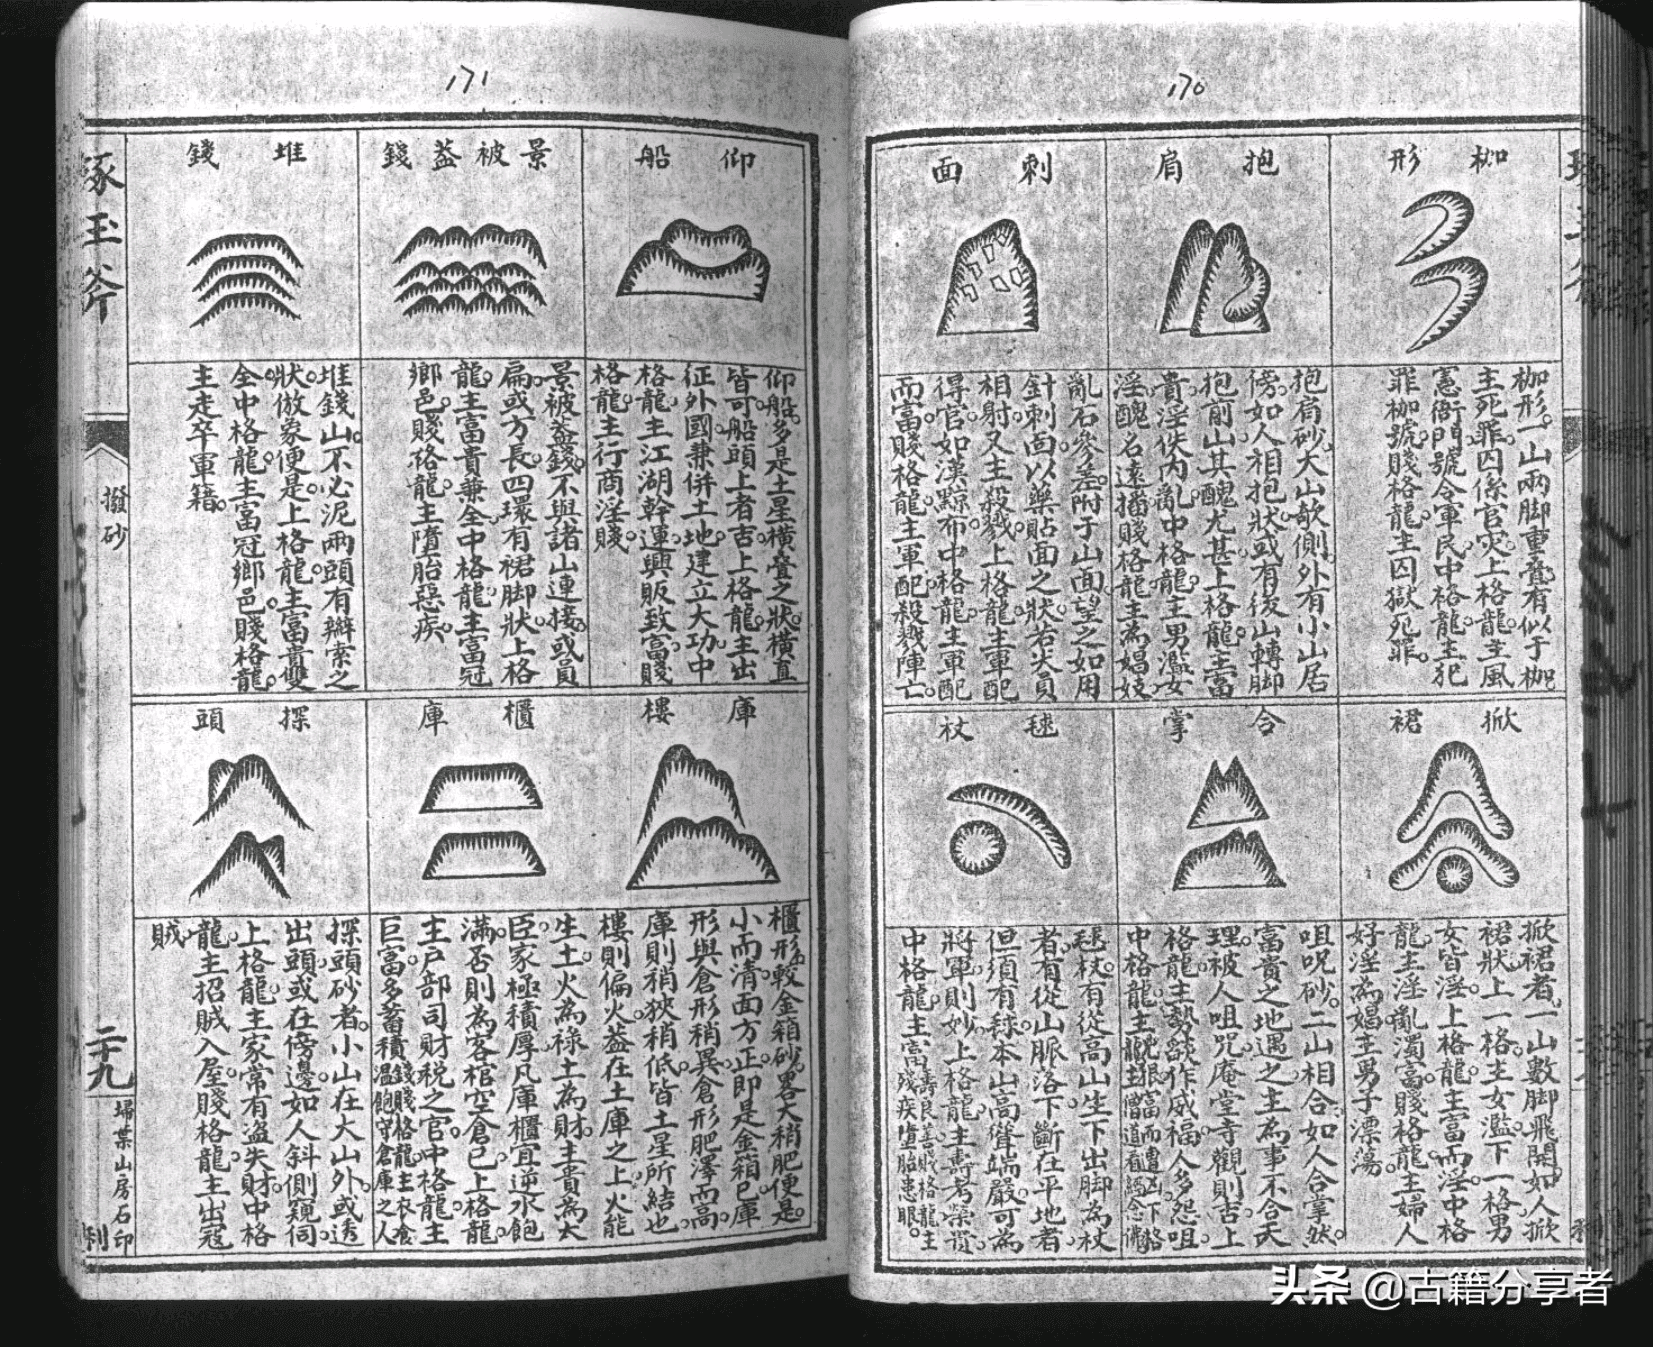 170
枷形
抱肩
刺面
枷形一山兩脚重叠有似于枷
主死罪囚係官灾上格龍主風
憲衙門號令軍民中格龍主犯
罪枷號賤格龍主囚獄死罪
抱肩砂大山欹側外有小山居
傍如人相抱狀或有後山轉脚
抱前山其醜尤甚上格龍主富
貴淫佚內亂中格龍主男濫女
淫醜名遠播賤格龍主為娼妓
亂石參差附于山面望之如用
針刺面以藥貼面之狀若尖員
相射又主殺戮上格龍主軍配
得官如漢黥布中格龍主軍配
而富賤格龍主軍配殺戮陣亡
掀裙
合掌
毬杖
掀裙者一山數脚飛開如人掀
裙狀上一格主女濫下一格男
女皆淫上格龍主富而淫中格
龍主淫亂濁富賤格龍主婦人
好淫為娼主男子漂蕩
咀呪砂二山相合如人合掌然
富貴之地遇之主為事不合天
理被人咀咒庵堂寺觀則吉上
格龍主勢燄作威福人多怨咀
毬杖有從高山生下出脚為杖
者有從山脈落下斷在平地者
但須有毬本山高聳端嚴可為
將軍則妙上格龍主壽考榮貴
171
仰船
景被蓋錢
堆錢
仰船多是土星橫叠之狀橫直
皆可船頭上者吉上格龍主出
征外國兼併土地建立大功中
格龍主江湖幹運興販致富賤
格龍主行商淫賤
景被蓋錢不與諸山連接或員
扁或方長四環有裙脚狀上格
龍主富貴兼全中格龍主富冠
鄉邑賤格龍主墮胎惡疾
堆錢山不必泥兩頭有辮索之
狀倣象便是上格龍主富貴雙
全中格龍主富冠鄉邑賤格龍
主走卒軍籍
庫樓
櫃庫
探頭
櫃形較金箱砂畧大稍肥便是
小而清面方正即是金箱已庫
形與倉形稍異倉形肥澤而高
庫則稍狹稍低皆土星所結也
樓則偏火蓋在土庫之上火能
生土火為祿土為財主貴為大
臣家極積厚凡庫櫃宜逆水飽
滿否則為客棺空倉已上格龍
主戶部司財稅之官中格龍主
巨富多蓄積錢賤格龍主衣食
溫飽守倉庫之人
探頭砂者小山在大山外或透
出頭或在傍邊如人斜側窺伺
上格龍主家常有盗失財中格
龍主招賊入屋賤格龍主出寇
賊
琢玉斧
撥砂
二十九
埽葉山房石印
头条 @古籍分享者